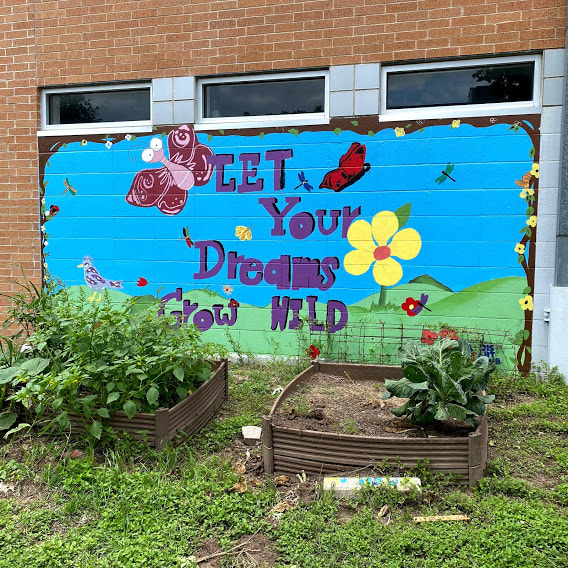 LET
Your
Dreams
Grow WILD